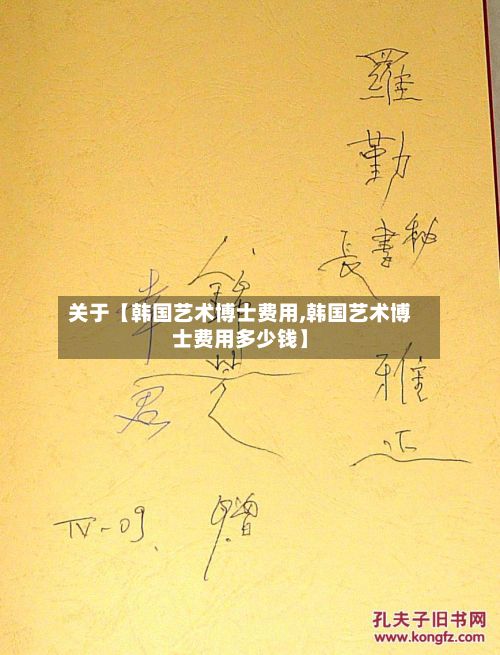 羅
勤
秘
書
長
雅
正
关于【韩国艺术博士费用,韩国艺术博
士费用多少钱】
君
贈
IV-09.
孔夫子旧书网
www.kongfz.com